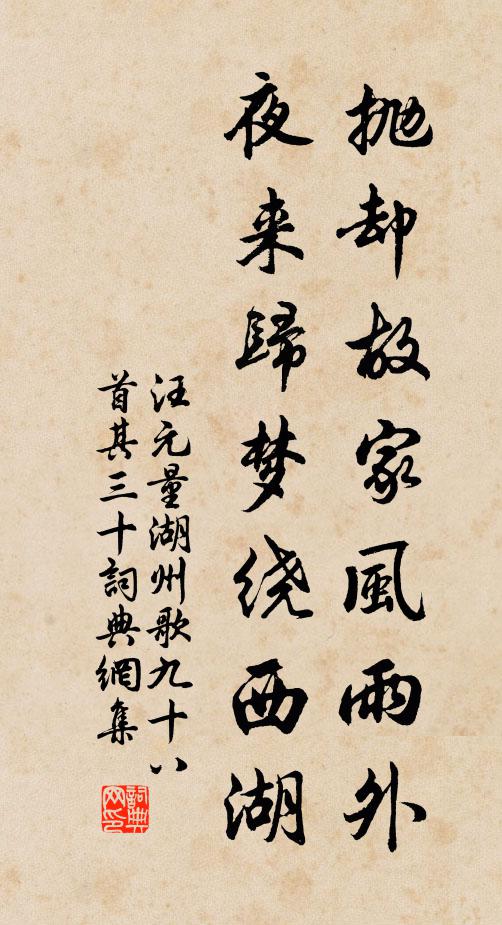 抛却故家風雨外
夜来歸梦绕西湖
汪元量湖州歌九十八
首其三十詞典網集
詞典
网印